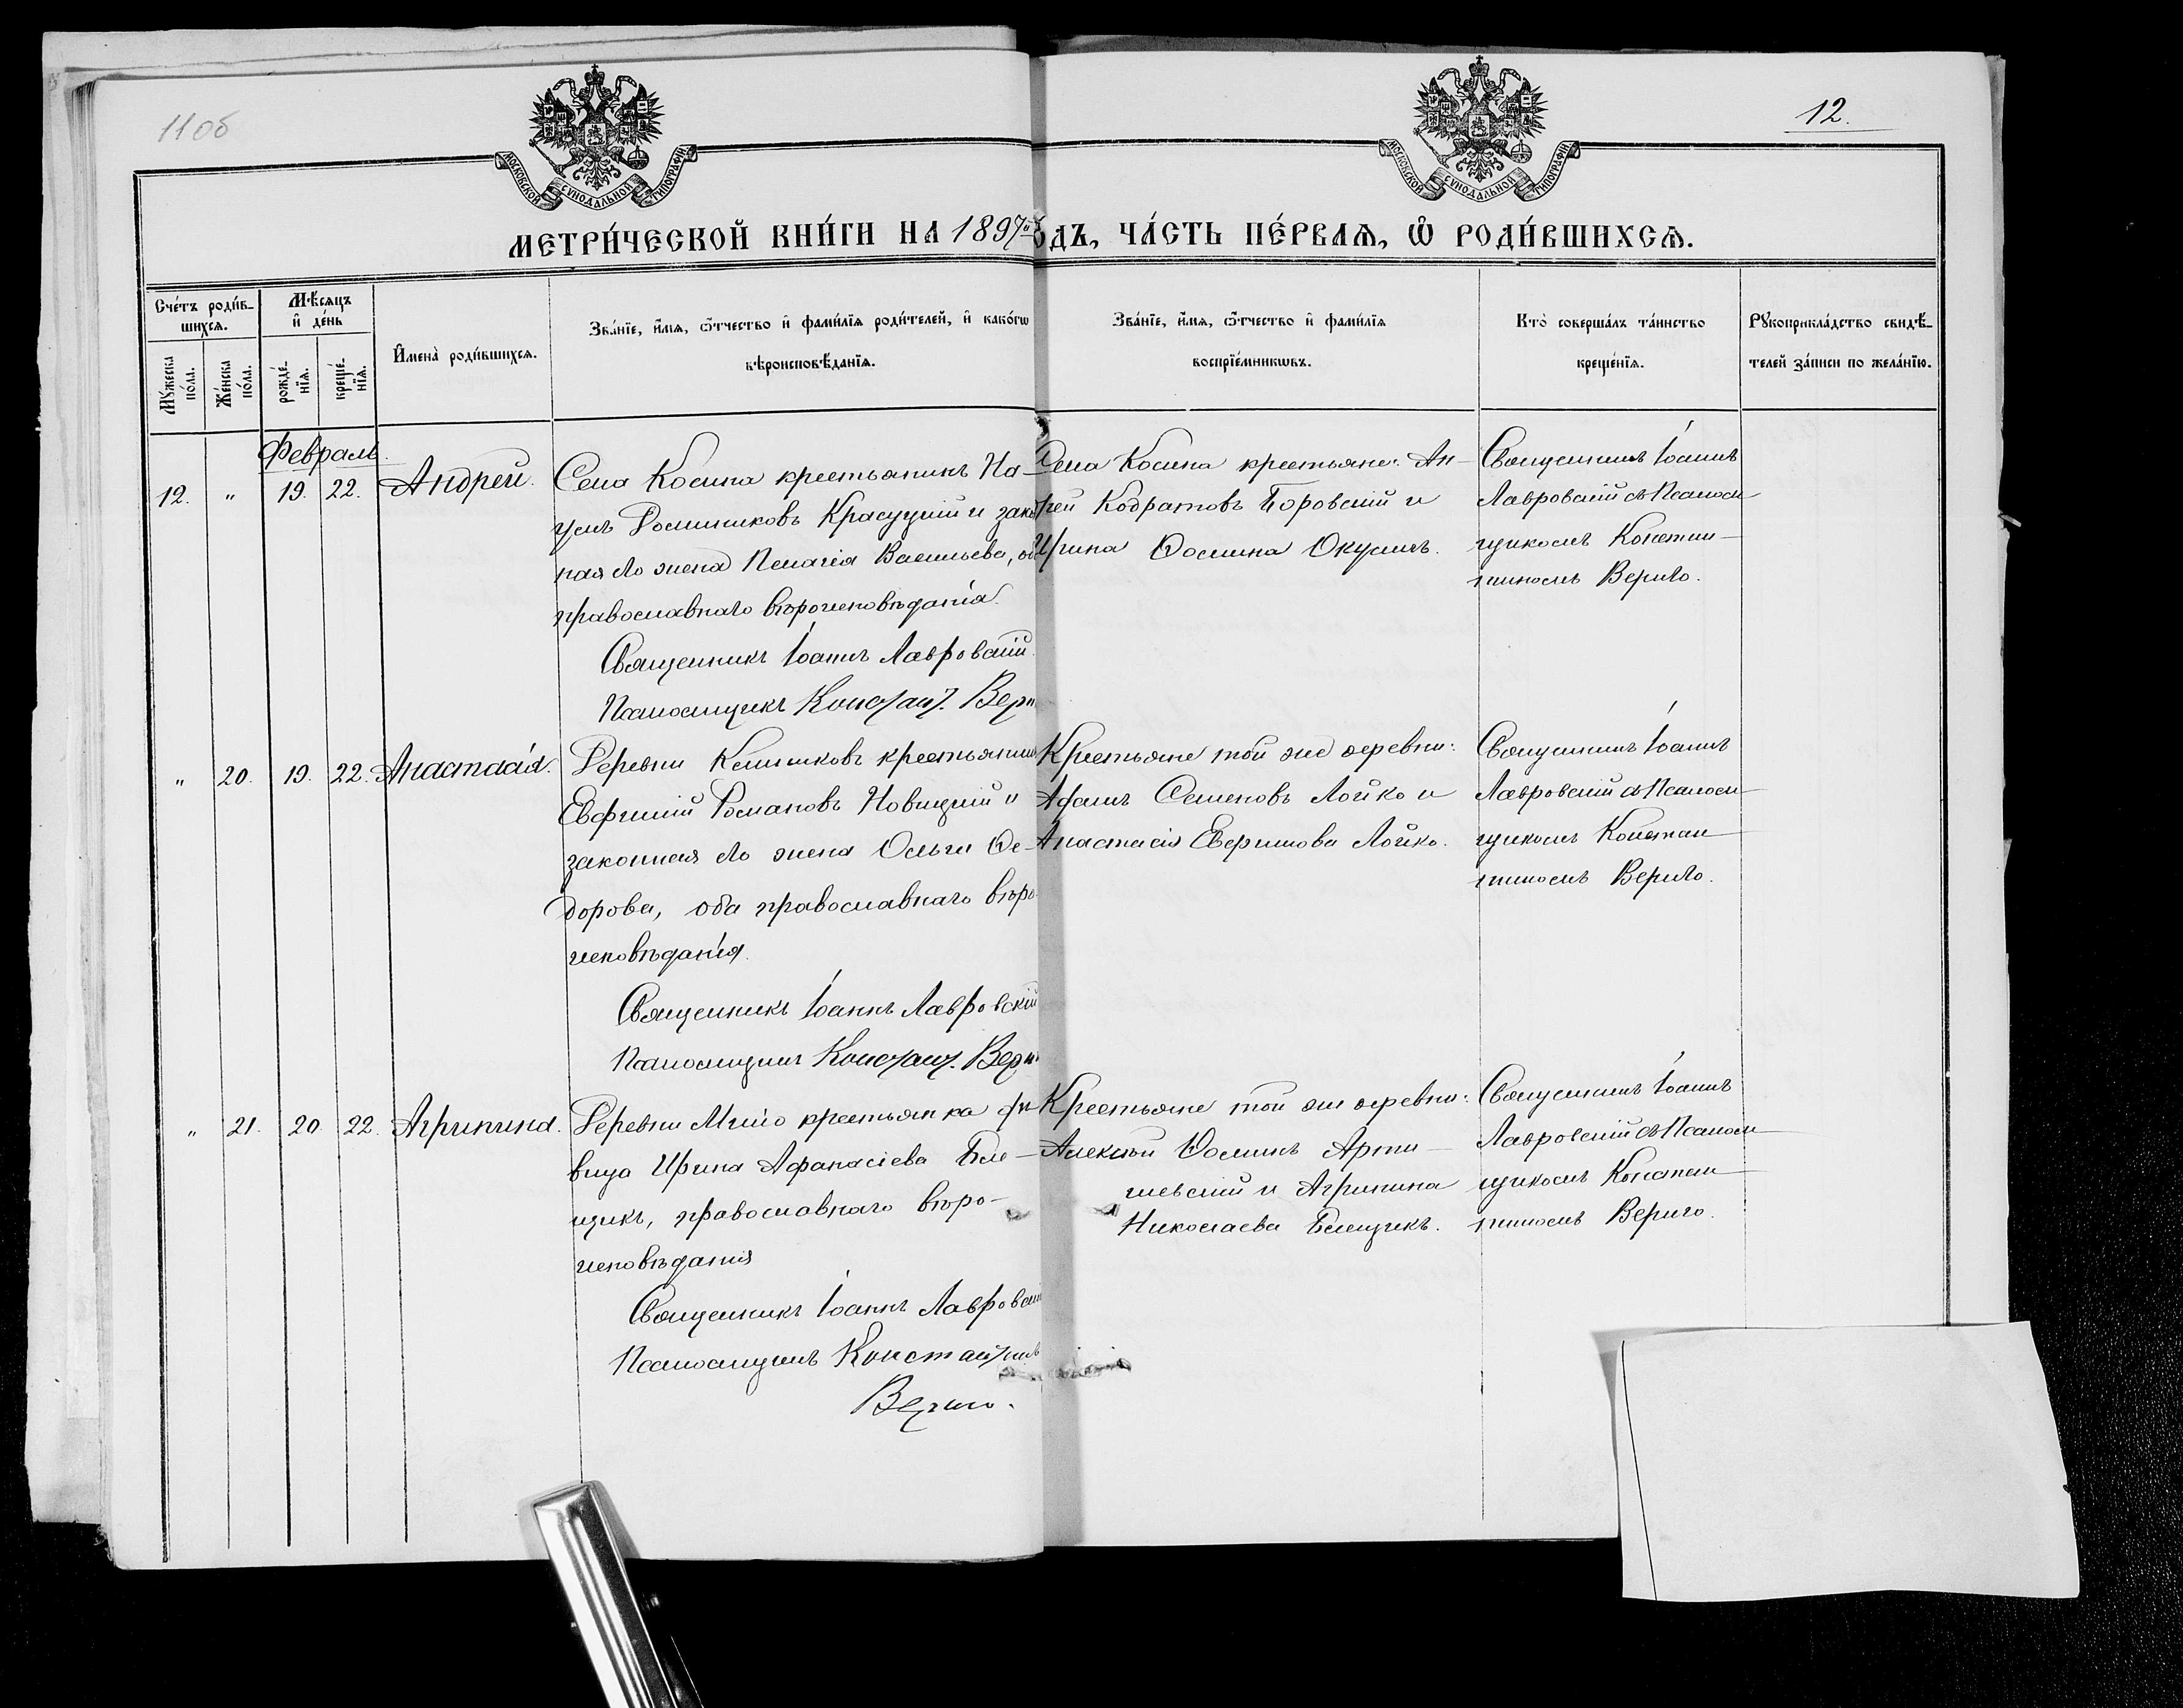 11об
12.
МОСКОВСКОЙ СѴНОДАЛЬНОЙ ТИПОГРАФІИ
МОСКОВСКОЙ СѴНОДАЛЬНОЙ ТИПОГРАФІИ
МЕТРИ́ЧЕСКОЙ КНИ́ГИ НА 1897й
ОДЪ, ЧА́СТЬ ПЕ́РВАѦ, Ѡ РОДИ́ВШИХСѦ.
Сче́тъ роди́в-
шихсѧ.
Мꙋ́жеска по́ла.
Же́нска по́ла.
Мѣ́сѧцъ
и де́нь
рожде́-нїѧ.
креще́-нїѧ.
Имена̀ роди́вшихсѧ.
Зва́нїе, и́мѧ, ѻ́тчество и фами́лїѧ роди́телей, и како́гѡ
вѣроисповѣ́данїѧ.
Зва́нїе, и́мѧ, ѻ́тчество и фами́лїѧ
воспрїе́мникѡвъ.
Кто̀ соверша́лъ та́инство
креще́нїѧ.
Рꙋкоприкла́дство свидѣ́-
телей за́писи по жела́нїю.
Февраль.
12. " 19. 22. Андрей.
Села Косина крестьянинъ На-
умъ Красуцкій и зако
ная его жена Пелагія Васильева, оба
православнаго вѣроисповѣданія.
Священникъ Іоаннъ Лавровскій.
Псаломщикъ Констант. Вери
Села Косина крестьяне: Ан-
рей Кодратовъ Боровскій и
Ирина Ѳомина Окушъ.
Священникъ Іоаннъ
Лавровскій съ Псалом-
щикомъ Констан-
тиномъ Вериго.
" 20. 19. 22. Анастасія.
Деревни крестьянинъ
Евфимій Романовъ Новицкій и
законная его жена Ольга Ѳе-
дорова, оба православнаго вѣро-
исповѣданія.
Священникъ Іоаннъ Лавровскій
Псаломщикъ Констант. Вери
Крестьяне той же деревни:
Семеновъ Лойко и
Анастасія Лойко.
Священникъ Іоаннъ
Лавровскій съ Псалом-
щикомъ Констан-
тиномъ Вериго.
" 21. 20. 22. Агрипина.
Деревни крестьянка дѣ-
вица Ирина Афанасіева Бле-
щикъ, православнаго вѣро-
исповѣданія
Священникъ Іоаннъ Лавровскій
Псаломщикъ Константинъ
Вериго.
Крестьяне той же деревни:
Алексѣй Ѳоминъ Арти-
шевскій и Агрипина
Николаева Блещикъ.
Священникъ Іоаннъ
Лавровскій съ Псалом-
щикомъ Констан-
тиномъ Вериго.